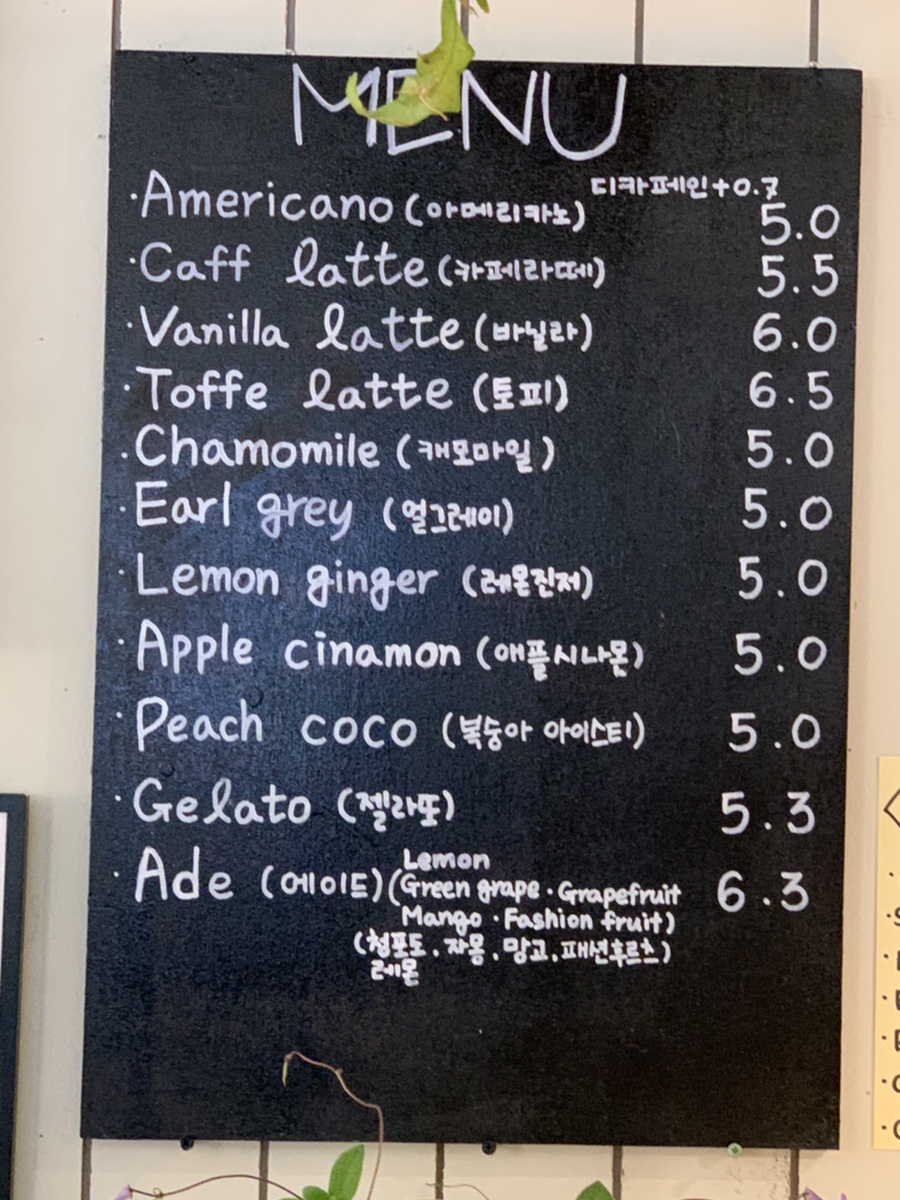 MENU
디카페인+0.7
·Americano (아메리카노) 5.0
·Caff latte (카페라떼) 5.5
·Vanilla latte (바닐라) 6.0
·Toffe latte (토피) 6.5
·Chamomile (캐모마일) 5.0
·Earl grey (얼그레이) 5.0
·Lemon ginger (레몬진저) 5.0
·Apple cinamon (애플시나몬) 5.0
·Peach coco (복숭아 아이스티) 5.0
·Gelato (젤라또) 5.3
Lemon
·Ade (에이드) (Green grape · Grapefruit 6.3
Mango · Fashion fruit)
(청포도 . 자몽 . 망고 . 패션후르츠)
레몬